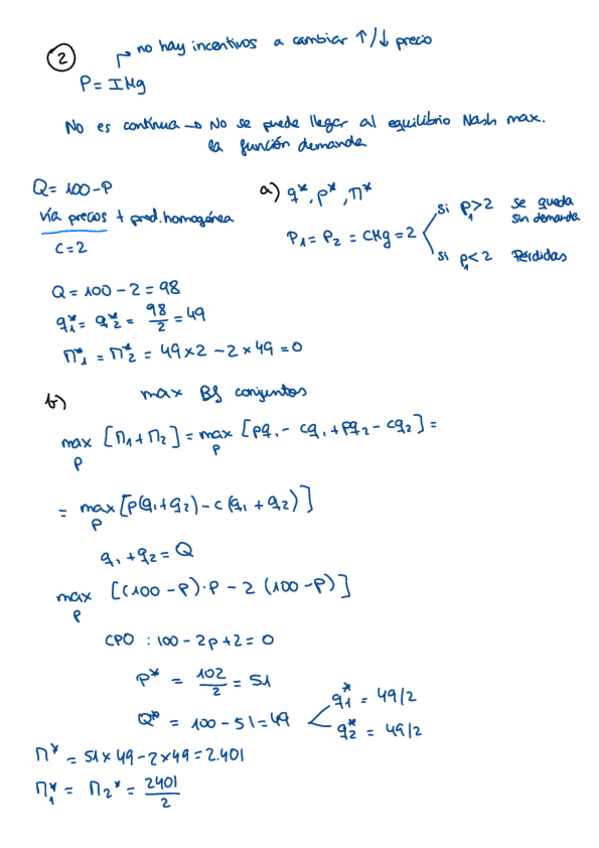 2
no hay incentivos a cambiar ↑/↓ precio
P = IMg
No es continua → No se puede llegar al equilibrio Nash max.
la función demanda
Q = 100 - P
vía precios + prod. homogénea
C = 2
a) q*, p*, Π*
P₁ = P₂ = CMg = 2
si p₁ > 2 se queda
sin demanda
si p₁ < 2 Pérdidas
Q = 100 - 2 = 98
q₁* = q₂* = 98/2 = 49
Π₁* = Π₂* = 49 x 2 - 2 x 49 = 0
b) max Bs conjuntos
max [Π₁ + Π₂] = max [pq₁ - cq₁ + pq₂ - cq₂] =
p p
= max [p(q₁ + q₂) - c(q₁ + q₂)]
p
q₁ + q₂ = Q
max [(100 - p)·p - 2 (100 - p)]
p
CPO : 100 - 2p + 2 = 0
p* = 102/2 = 51
Q* = 100 - 51 = 49
q₁* = 49/2
q₂* = 49/2
Π* = 51 x 49 - 2 x 49 = 2.401
Π₁* = Π₂* = 2401/2